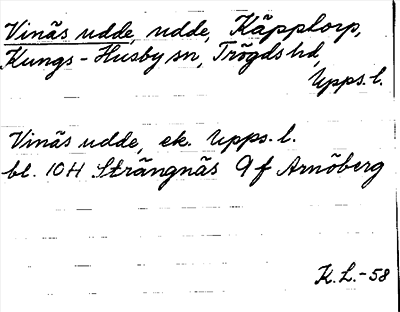 Vinäs udde, udde, Käpptorp,
Kungs-Husby sn, Trögds hd,
Upps. l.
Vinäs udde, ek. Upps. l.
bl. 10H Strängnäs 9f Arnöberg
K.L.-58